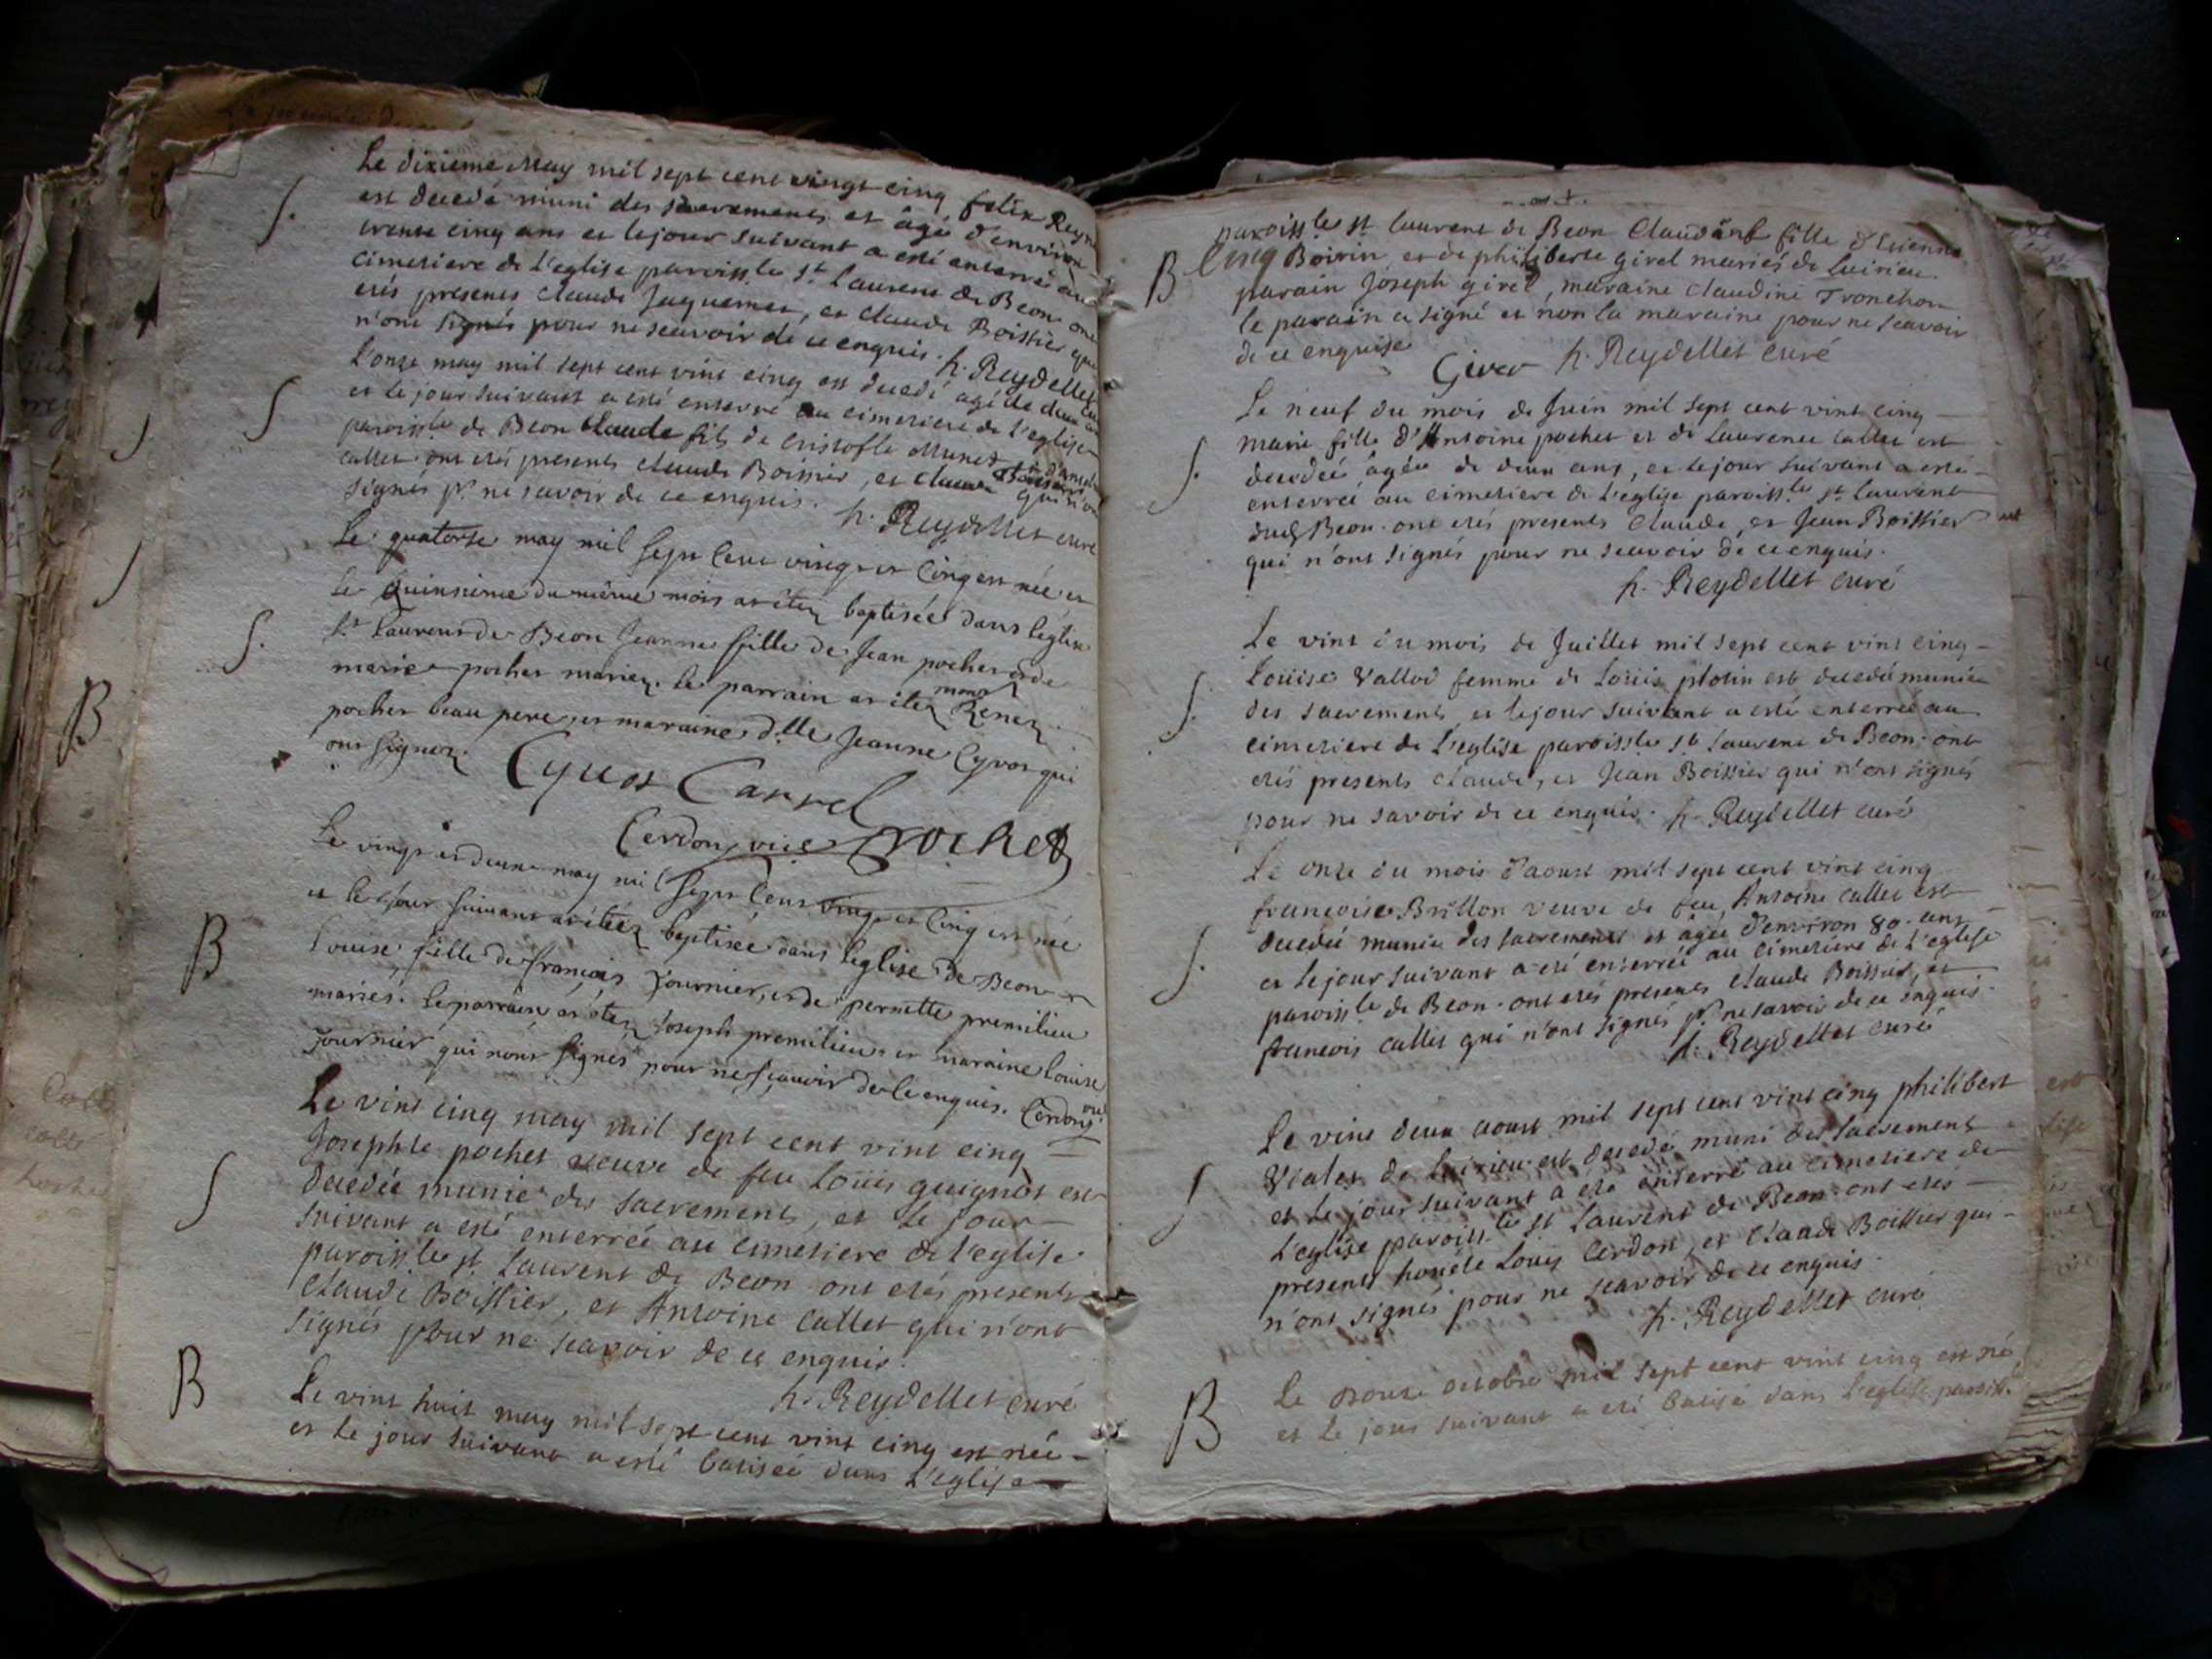 Le dixieme May mil sept cent vingt cinq felix Reyn
S. est decedé muni des sacrements et âgé d'environ
trente cinq ans et le jour suivant a esté enterré au
cimetiere de l'eglise paroissle st laurent de Beon ont
etés presents claude Juquemet, et claude Boissier qui
n'ont signés pour ne scavoir de ce enquis. h. Reydellet
L'onze may mil sept cent vint cinq est decedé agé de deux
S et le jour suivant a esté enterré au cimetiere de l'eglise
paroissle de Beon Claude fils de Cristofle Munet
callet ont etés presents claude Boissier, et claude qui n'on
signés pr ne scavoir de ce enquis. h. Reydellet curé
Le quatorse may mil sept cent vingt et cinq est née et
le quinsieme du même mois at étez baptisée dans l'eglise
S. st laurent de Beon Jeanne fille de Jean pochet et de
marie pochet mariez. le parrain at étez monsr Renez
pochet beau pere, et maraine dlle Jeanne Cyvot qui
ont signez.
Cyvot Carrel
Cerdon, vice pochet
Le vingt et deux may mil sept cent vingt et cinq est née
B et le jour suivant at étéz baptisée dans l'eglise de Beon
Louise fille de françois fournier, et de pernette premilieu
mariés. le parrain at étez Joseph premilieu et maraine louise
fournier qui n'ont signés pour ne sçavoir de ce enquis. Cerdon
Le vint cinq may mil sept cent vint cinq
Josephte pochet veuve de feu Loüis guignot est
S decedée munie des sacrements, et le jour
suivant a esté enterrée au cimetiere de l'eglise
paroissle st laurent de Beon ont etés presents
claude Boissier, et Antoine callet qui n'ont
signés pour ne scavoir de ce enquis.
h. Reydellet curé
B Le vint huit may mil sept cent vint cinq est née
et le jour suivant a esté batisée dans L'eglise
paroissle st laurent de Beon Claudine fille d'Etienne
B Boivin et de philiberte girel mariés de luirieu
parain Joseph girel, maraine claudine Tronchon
le parain a signé et non la maraine pour ne scavoir
de ce enquise
Girel h. Reydellet curé
Le neuf du mois de Juin mil sept cent vint cinq
marie fille d'Antoine pochet et de laurence callet est
S. decedée âgée de deux ans, et le jour suivant a esté
enterrée au cimetiere de l'eglise paroissle st laurent
dud Beon. ont etés presents claude, et Jean Boissier
qui n'ont signés pour ne scavoir de ce enquis.
h. Reydellet curé
Le vint du mois de Juillet mil sept cent vint cinq
Loüise Vallod femme de Loüis plotin est decedée munie
S. des sacrements et le jour suivant a esté enterrée au
cimetiere de l'eglise paroissle st laurent de Beon. ont
etés presents claude, et Jean Boissier qui n'ont signés
pour ne savoir de ce enquis. h. Reydellet curé
Le onze du mois d'aoust mil sept cent vint cinq
françoise Brillon veuve de feu Antoine callet est
S. decedée munie des sacrements et agée d'environ 80. ans
et le jour suivant a eté enterrée au cimetiere de l'eglise
paroissle de Beon. ont etés presents claude Boissier, et
francois callet qui n'ont signés pr ne savoir de ce enquis.
h. Reydellet curé
Le vint deux aoust mil sept cent vint cinq philibert
S Vialet de luirieu est decedé muni des sacrements
et le jour suivant a eté enterré au cimetiere de
l'eglise paroissle st laurent de Beon ont etés
presents honete Louis Cerdon, et claude Boissier qui
n'ont signés pour ne scavoir de ce enquis.
h. Reydellet curé
B Le douze octobre mil sept cent vint cinq est né
et le jour suivant a eté batisé dans l'eglise paroissle